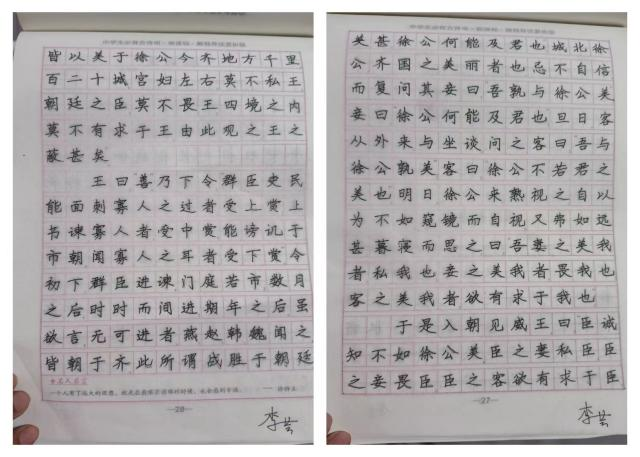 皆以美于徐公今齐地方千里
百二十城宫妇左右莫不私王
朝廷之臣莫不畏王四境之内
莫不有求于王由此观之王之
蔽甚矣
王曰善乃下令群臣吏民
能面刺寡人之过者受上赏上
书谏寡人者受中赏能谤讥于
市朝闻寡人之耳者受下赏令
初下群臣进谏门庭若市数月
之后时时而间进期年之后虽
欲言无可进者燕赵韩魏闻之
皆朝于齐此所谓战胜于朝廷
★名人名言
一个人有了远大的理想，就是在最艰苦困难的时候，也会感到幸福。 ——徐特立
—28—
李芸
中学生必背古诗词·新课标
美甚徐公何能及君也城北徐
公齐国之美丽者也忌不自信
而复问其妾曰吾孰与徐公美
妾曰徐公何能及君也旦日客
从外来与坐谈问之客曰吾与
徐公孰美客曰徐公不若君之
美也明日徐公来熟视之自以
为不如窥镜而自视又弗如远
甚暮寝而思之曰吾妻之美我
者私我也妾之美我者畏我也
客之美我者欲有求于我也
于是入朝见威王曰臣诚
知不如徐公美臣之妻私臣臣
之妾畏臣臣之客欲有求于臣
—27—
李芸